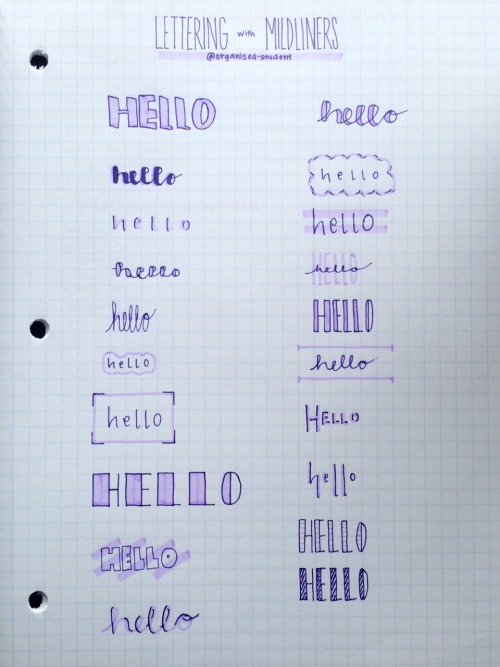 LETTERING with MILDLINERS
@organised-student
HELLO
hello
hello
hello
hello
hello
hello
HELLO
HELLO
hello
hello
hello
hello
HELLO hello
HELLO
hello
HELLO
hello
HELLO
HELLO